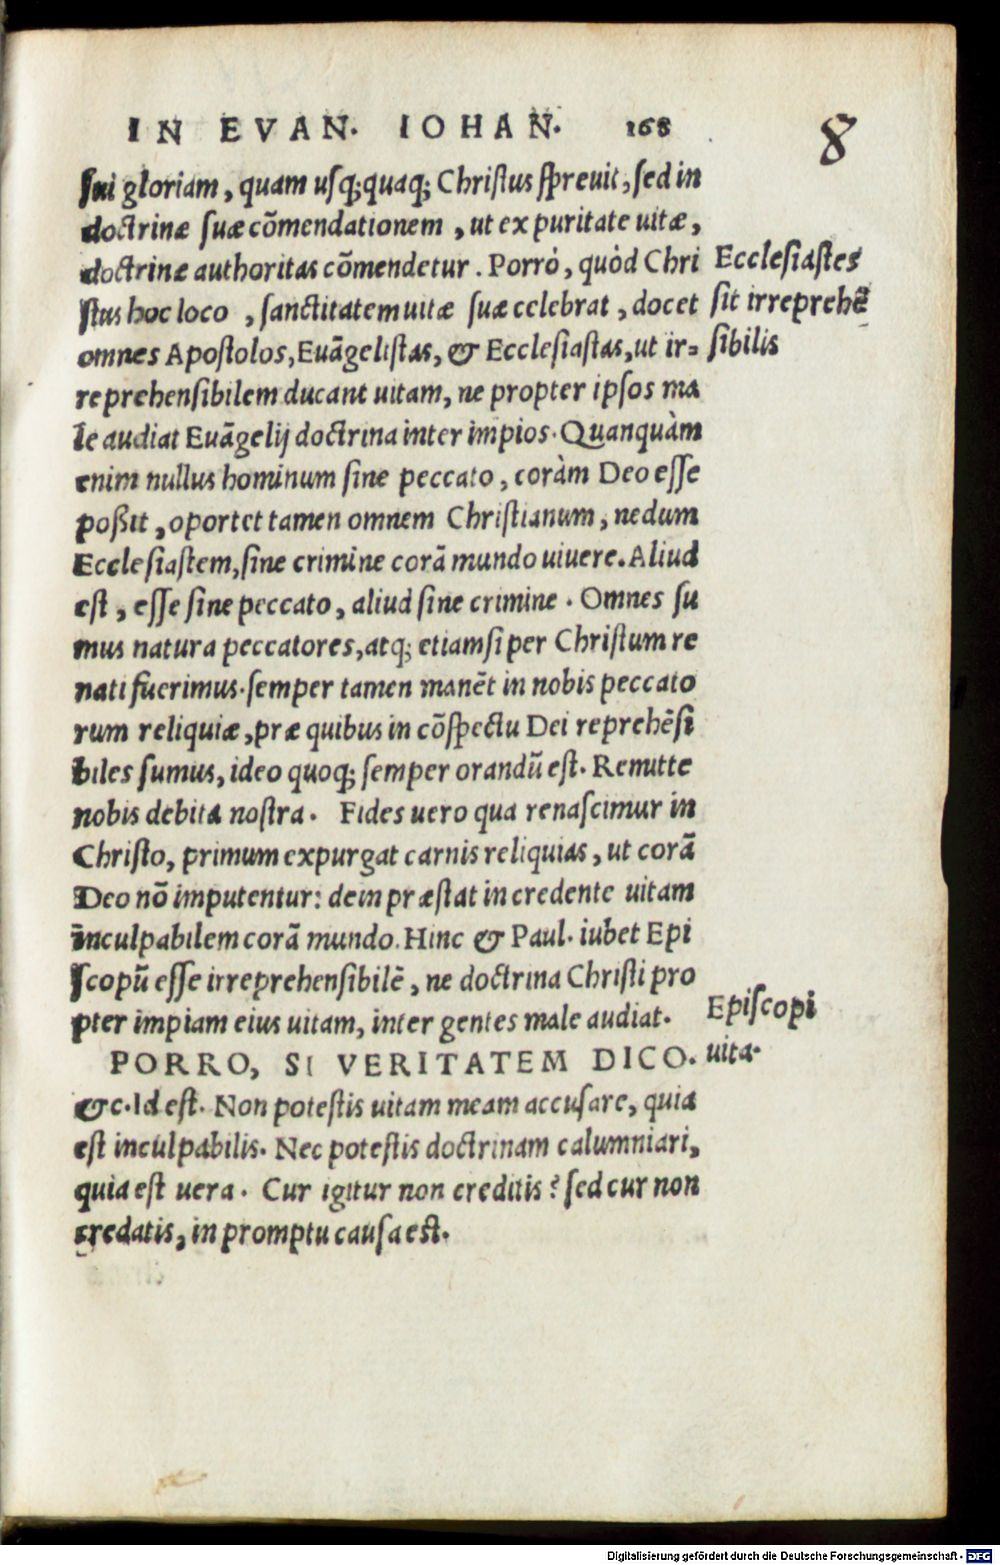 IN EVAN. IOHAN. 168
8
ſui gloriam, quam uſq;quaq; Chriſtus ſpreuit, ſed in
doctrinæ ſuæ cõmendationem, ut ex puritate uitæ,
doctrinæ authoritas cõmendetur. Porrò, quòd Chri
ſtus hoc loco, ſanctitatem uitæ ſuæ celebrat, docet
omnes Apoſtolos, Euãgeliſtas, & Eccleſiaſtas, ut ir-
reprehenſibilem ducant uitam, ne propter ipſos ma
le audiat Euãgelij doctrina inter impios. Quanquàm
enim nullus hominum ſine peccato, coràm Deo eſſe
poßit, oportet tamen omnem Chriſtianum, nedum
Eccleſiaſtem, ſine crimine corã mundo uiuere. Aliud
eſt, eſſe ſine peccato, aliud ſine crimine. Omnes ſu
mus natura peccatores, atq; etiamſi per Chriſtum re
nati fuerimus. ſemper tamen manẽt in nobis peccato
rum reliquiæ, præ quibus in cõſpectu Dei reprehẽſi
biles ſumus, ideo quoq; ſemper orandũ eſt. Remitte
nobis debita noſtra. Fides uero qua renaſcimur in
Chriſto, primum expurgat carnis reliquias, ut corã
Deo nõ imputentur: dein præſtat in credente uitam
inculpabilem corã mundo. Hinc & Paul. iubet Epi
ſcopũ eſſe irreprehenſibilẽ, ne doctrina Chriſti pro
pter impiam eius uitam, inter gentes male audiat.
PORRO, SI VERITATEM DICO.
&c. Id eſt. Non poteſtis uitam meam accuſare, quia
eſt inculpabilis. Nec poteſtis doctrinam calumniari,
quia eſt uera. Cur igitur non creditis? ſed cur non
credatis, in promptu cauſa eſt.
Eccleſiaſtes
ſit irreprehẽ
ſibilis
Epiſcopi
uita.
Digitalisierung gefördert durch die Deutsche Forschungsgemeinschaft - DFG